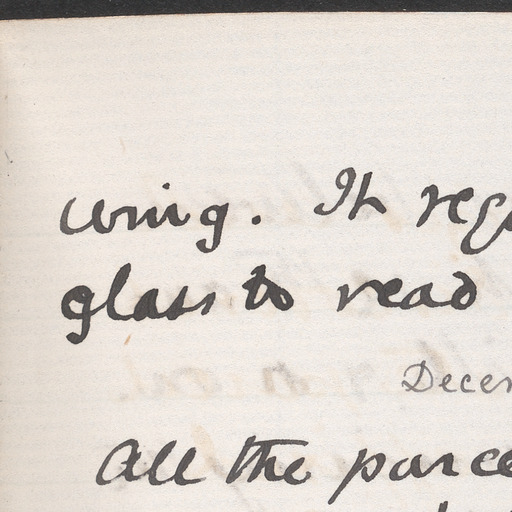 wing. It req
glass to read
Decem
All the parce